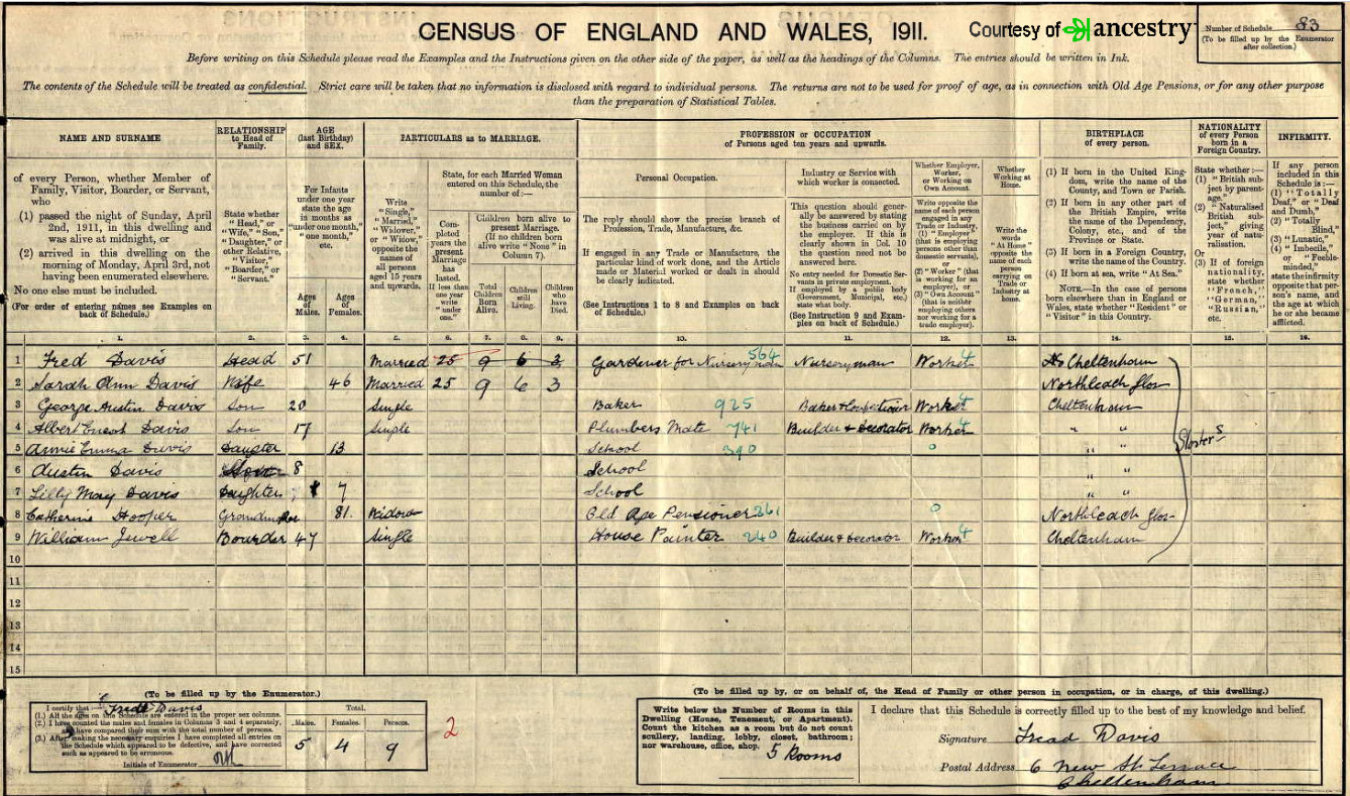 CENSUS OF ENGLAND AND WALES, 1911.
Courtesy of ancestry
Number of Schedule 83
(To be filled up by the Enumerator
after collection.)
Before writing on this Schedule please read the Examples and the Instructions given on the other side of the paper, as well as the headings of the Columns. The entries should be written in Ink.
The contents of the Schedule will be treated as confidential. Strict care will be taken that no information is disclosed with regard to individual persons. The returns are not to be used for proof of age, as in connection with Old Age Pensions, or for any other purpose
than the preparation of Statistical Tables.
NAME AND SURNAME
of every Person, whether Member of
Family, Visitor, Boarder, or Servant,
who
(1) passed the night of Sunday, April
2nd, 1911, in this dwelling and
was alive at midnight, or
(2) arrived in this dwelling on the
morning of Monday, April 3rd, not
having been enumerated elsewhere.
No one else must be included.
(For order of entering names see Examples on
back of Schedule.)
RELATIONSHIP
to Head of
Family.
State whether
"Head," or
"Wife," "Son,"
"Daughter," or
other Relative,
"Visitor,"
"Boarder," or
"Servant."
AGE
(last Birthday)
and SEX.
For Infants
under one year
state the age
in months as
"under one month,"
"one month,"
etc.
Ages
of
Males.
Ages
of
Females.
PARTICULARS as to MARRIAGE.
Write
"Single,"
"Married,"
"Widower,"
or "Widow,"
opposite the
names of
all persons
aged 15 years
and upwards.
State, for each Married Woman
entered on this Schedule, the
number of:—
Com-
pleted
years the
present
Marriage
has
lasted.
If less than
one year
write
"under
one."
Children born alive to
present Marriage.
(If no children born
alive write "None" in
Column 7).
Total
Children
Born
Alive.
Children
still
Living.
Children
who
have
Died.
PROFESSION or OCCUPATION
of Persons aged ten years and upwards.
Personal Occupation.
The reply should show the precise branch of
Profession, Trade, Manufacture, &c.
If engaged in any Trade or Manufacture, the
particular kind of work done, and the Article
made or Material worked or dealt in should
be clearly indicated.
(See Instructions 1 to 8 and Examples on back
of Schedule.)
Industry or Service with
which worker is connected.
This question should gener-
ally be answered by stating
the business carried on by
the employer. If this is
clearly shown in Col. 10
the question need not be
answered here.
No entry needed for Domestic Ser-
vants in private employment.
If employed by a public body
(Government, Municipal, etc.)
state what body.
(See Instruction 9 and Exam-
ples on back of Schedule.)
Whether Employer,
Worker,
or Working on
Own Account.
Write opposite the
name of each person
engaged in any
Trade or Industry,
(1) "Employer"
(that is employing
persons other than
domestic servants),
or
(2) "Worker" (that
is working for an
employer), or
(3) "Own Account"
(that is neither
employing others
nor working for a
trade employer).
Whether
Working at
Home.
Write the
words
"At Home"
opposite the
name of each
person
carrying on
Trade or
Industry at
home.
BIRTHPLACE
of every person.
(1) If born in the United King-
dom, write the name of the
County, and Town or Parish.
(2) If born in any other part of
the British Empire, write
the name of the Dependency,
Colony, etc., and of the
Province or State.
(3) If born in a Foreign Country,
write the name of the Country.
(4) If born at sea, write "At Sea."
NOTE.—In the case of persons
born elsewhere than in England or
Wales, state whether "Resident" or
"Visitor" in this Country.
NATIONALITY
of every Person
born in a
Foreign Country.
State whether:—
(1) "British sub-
ject by parent-
age,"
(2) "Naturalised
British sub-
ject," giving
year of natu-
ralisation.
Or
(3) If of foreign
nationality,
state whether
"French,"
"German,"
"Russian,"
etc.
INFIRMITY.
If any person
included in this
Schedule is:—
(1) "Totally
Deaf," or "Deaf
and Dumb,"
(2) "Totally
Blind,"
(3) "Lunatic,"
(4) "Imbecile,"
or "Feeble-
minded,"
state the infirmity
opposite that per-
son's name, and
the age at which
he or she became
afflicted.
1. 2. 3. 4. 5. 6. 7. 8. 9. 10. 11. 12. 13. 14. 15. 16.
1 Fred Davis Head 51 Married 25 9 6 3 Gardener for Nurseryman 564 Nurseryman Worker 4 Cheltenham
2 Sarah Ann Davis Wife 46 Married 25 9 6 3 Northleach Glos
3 George Austin Davis Son 20 Single Baker 925 Worker 4 Cheltenham
4 Albert Davis Son 17 Single Plumbers Mate 741 Builder & Decorator Worker 4 " "
5 Annie Emma Davis Daugter 13 School 390 0 " "
6 Austin Davis 8 School " "
7 Lilly May Davis Daughter 7 School " "
8 Catherine Hooper 81 Widow Old Age Pensioner 261 0 Northleach Glos
9 William Jewell Bourder 47 Single House Painter 240 Builder & Decorator Worker 4 Cheltenham
Glosters
10
11
12
13
14
15
(To be filled up by the Enumerator.)
I certify that:— Fred Davis
(1.) All the ages on this Schedule are entered in the proper sex columns.
(2.) I have counted the males and females in Columns 3 and 4 separately,
and have compared their sum with the total number of persons.
(3.) After making the necessary enquiries I have completed all entries on
the Schedule which appeared to be defective, and have corrected
such as appeared to be erroneous.
Initials of Enumerator
Total.
Males. Females. Persons.
5 4 9
2
(To be filled up by, or on behalf of, the Head of Family or other person in occupation, or in charge, of this dwelling.)
Write below the Number of Rooms in this
Dwelling (House, Tenement, or Apartment).
Count the kitchen as a room but do not count
scullery, landing, lobby, closet, bathroom;
nor warehouse, office, shop.
5 Rooms
I declare that this Schedule is correctly filled up to the best of my knowledge and belief.
Signature Fread Davis
Postal Address 6 New St Terrace
Cheltenham